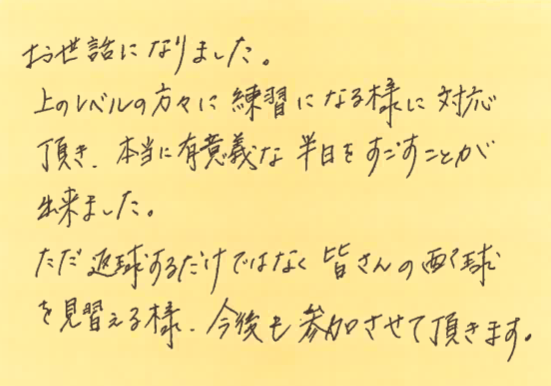 お世話になりました。
上のレベルの方々に練習になる様に対応
頂き、本当に有意義な半日をすごすことが
出来ました。
ただ返球するだけではなく皆さんの配球
を見習える様、今後も参加させて頂きます。